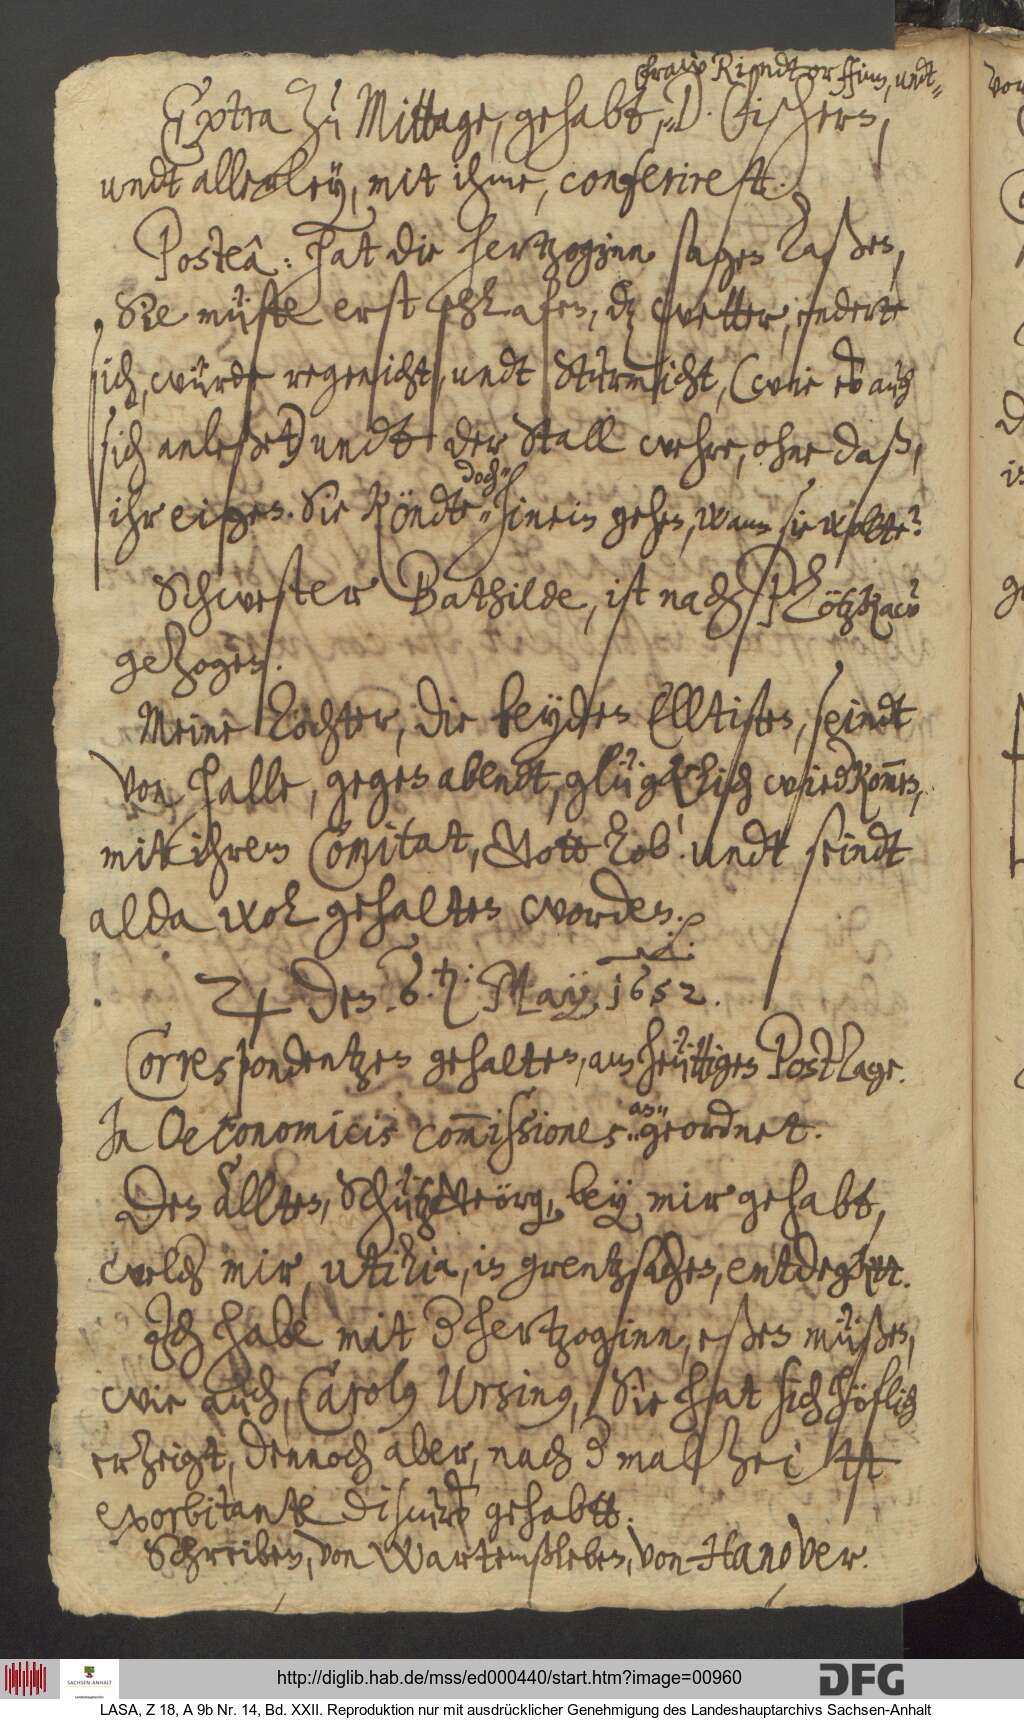 Fraw Rindtorffinn, undt"
Extra zu Mittage, gehabt, D. Fischern,
undt allerley, mit ihme, conferiret.
Posteâ: hat die hertzoginn sagen laßen,
Sie müste erst schlafen, dz wetter, enderte
sich, würde regenicht, undt Sturmicht, (wie es auch
sich anleßet) undt der Stall wehre, ohne daß,
ihr eigen. Sie köndte hinein gehen, wann sie wollte?
doch"
Schwester Bathilde, ist nach Plötzkaw
gezogen.
Meine Töchter, die beyden Elltisten, seindt
von Halle, gegen abendt, glügklich wiedkommen,
mit ihrem Comitat, Gott lob! undt seindt
alda wol gehalten worden.
♃ den 6.t: May, 1652.
Correspondentzen gehalten, am heüttigen Postage.
In Oeconomicis commissiones geordnet.
an"
Den Alten, Schütz Geörg, bey mir gehabt,
welch mir, utilia, in grentzsachen, entdegket.
Ich habe mit d hertzoginn, eßen müßen,
wie auch, Carolus Ursinus, Sie hat sich höflich
erzeigt, dennoch aber, nach d malzeitt
exorbitante discurß gehabtt.
Schreiben, von Wartemßleben, von Hanover.
http://diglib.hab.de/mss/ed000440/start.htm?image=00960
SACHSEN-ANHALT
DFG
LASA, Z 18, A 9b Nr. 14, Bd. XXII. Reproduktion nur mit ausdrücklicher Genehmigung des Landeshauptarchivs Sachsen-Anhalt